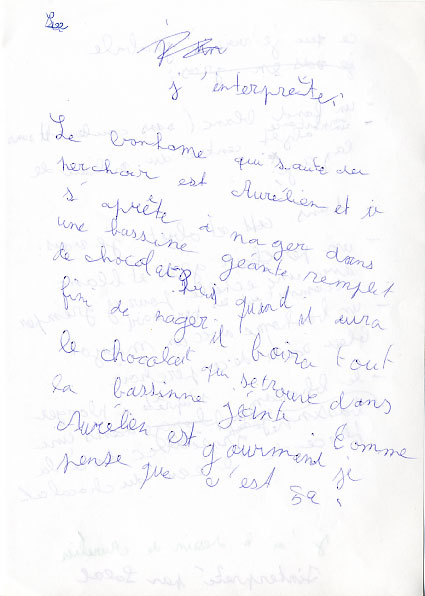 j'interprète.
Le bonhome qui saute du
perchoir est Aurélien et il
s'aprête à nager dans
une bassine geante remplit
de chocolat. Puis quand il aura
fini de nager il boira tout
le chocolat qui se trouve dans
la bassinne géante comme
Aurélien est gourmand je
pense que c'est ça.